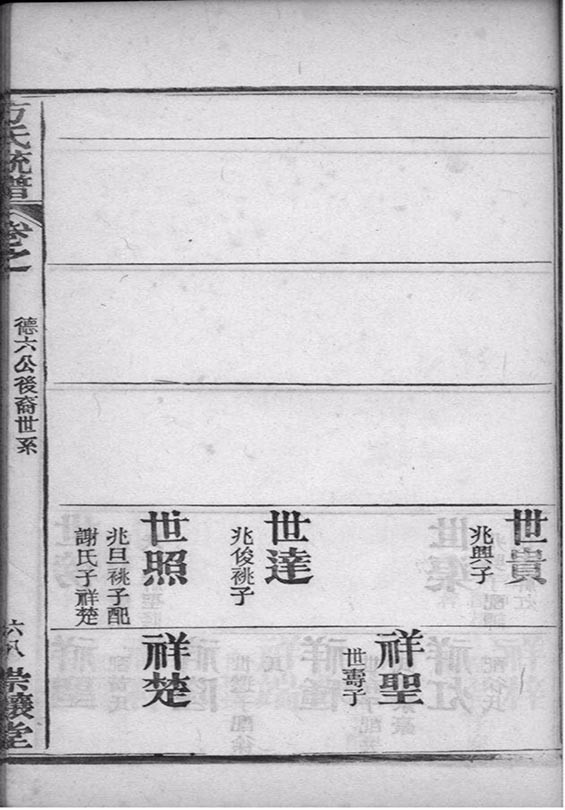 世貴
兆興子
祥聖
世壽子
世達
兆俊祧子
世照
兆旦祧子配
謝氏子祥楚
祥楚
方氏統譜
卷之
德六公後裔世系
六八
崇讓堂